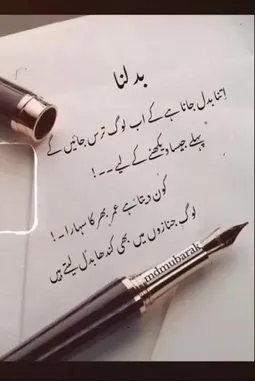 بدلنا
اتنا بدل جانا ہے کے اب لوگ ترس جائیں گے
پہلے جیسا دیکھنے کے لیے ۔۔!
کون دیتا ہے عمر بھر کا سہارا ۔!
لوگ جنازوں میں بھی کندھا بدل لیتے ہیں
mdmubarak